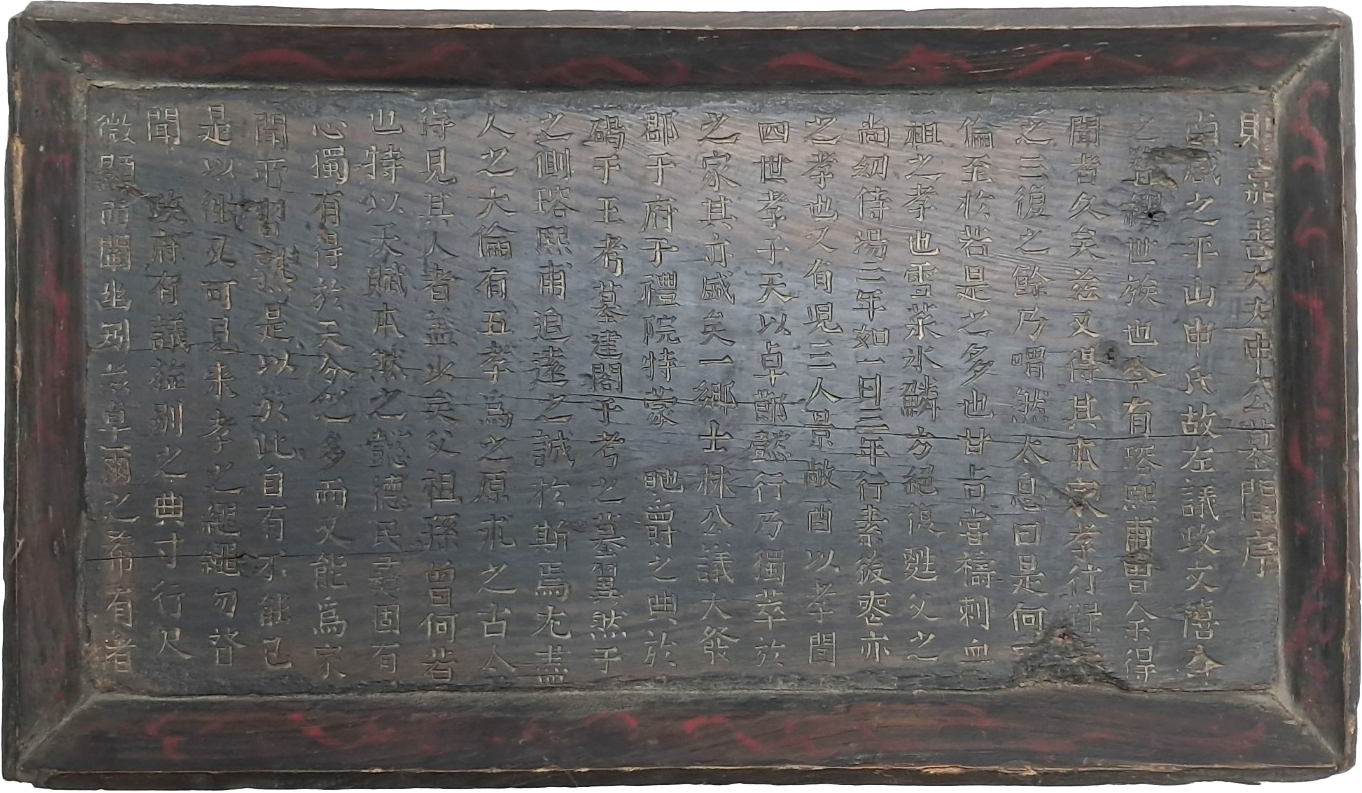 贈嘉善大夫申公墓閣序
卣咸之平山申氏故左議政文僖公
之簪纓世族也今有瑢熙甫曾余得
聞者久矣玆又得其本家孝行
之三復之餘乃喟然太息曰是何
倫至於若是之多也甘占嘗禱刺血
祖之孝也雪菜氷鱗方絕復甦父之
尙幼侍湯三年如一日三年行素後喪亦
之孝也又有兒三人景敞酉以孝聞
四世孝乎天以卓節懿行乃獨萃於
之家其亦盛矣一鄕士林公議大發
郡于府于禮院特蒙 貤爵之典於
碣乎王考墓建閣乎考之墓翼然乎
之側瑢熙甫追遠之誠於斯焉尤盡
人之大倫有五孝爲之原求之古今
得見其人者盖少矣父祖孫曾何若
也特以天賦本然之懿德民彛固有
心獨有得於天分之多而又能爲家
聞而習熟是以於此自有不能已
是以徃又可見來孝之繩繩勿替
聞 政府有議旌別之典寸行尺
微顯而闡幽矧玆卓爾之希有者